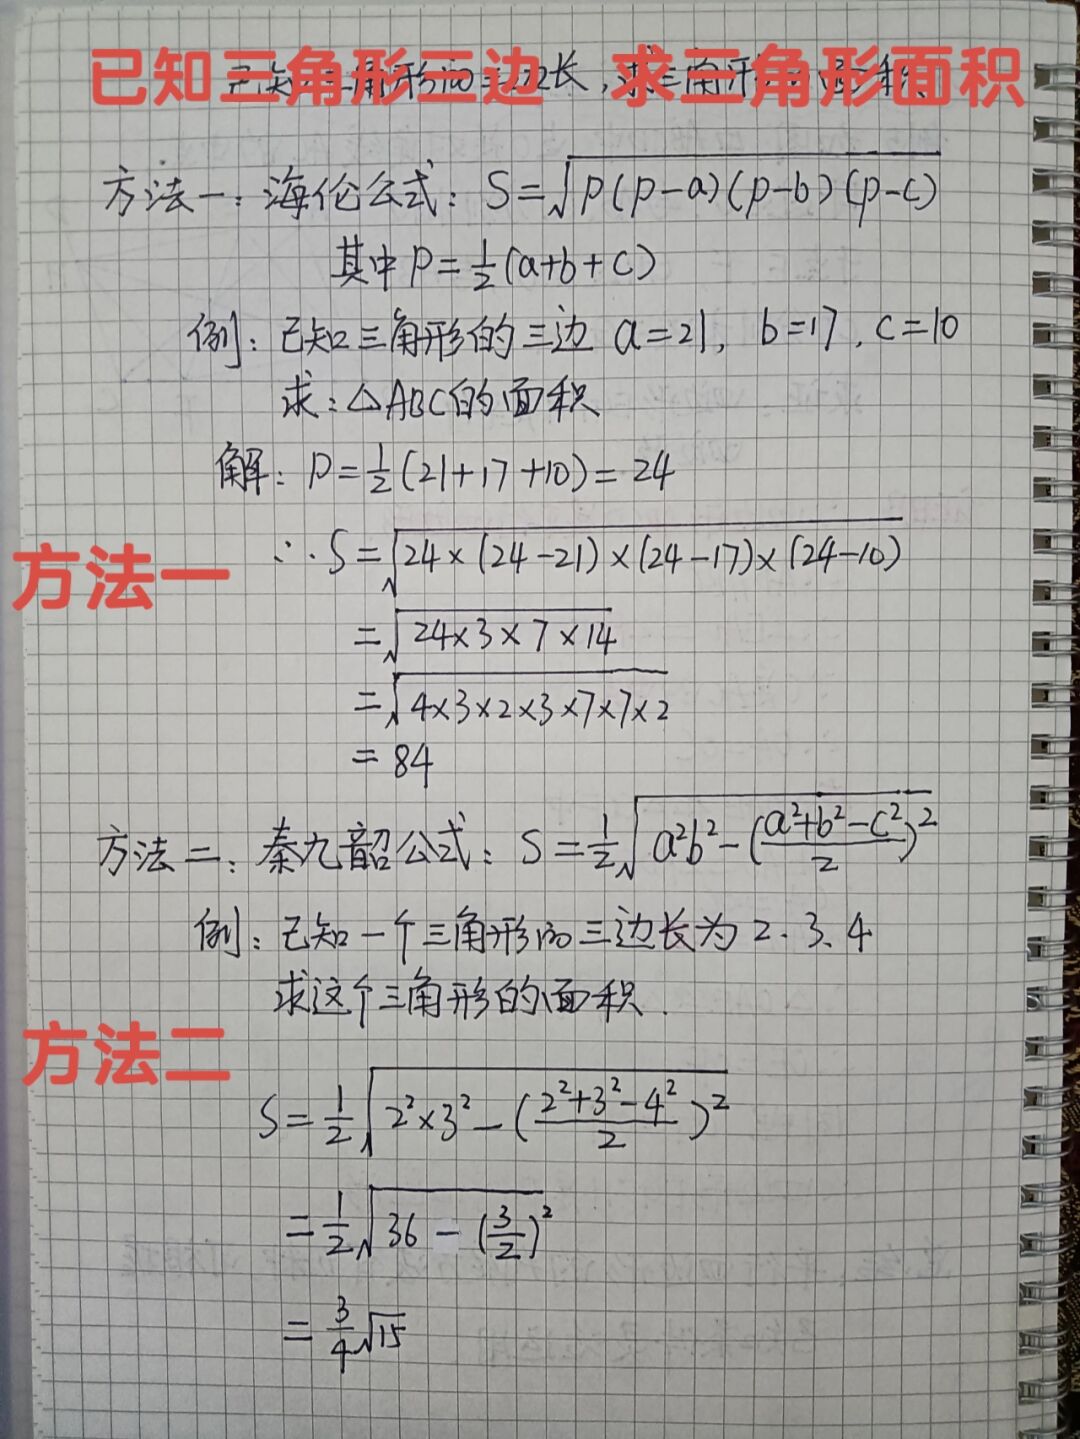 已知三角形三边 求三角形面积
方法一：海伦公式：S=√p(p-a)(p-b)(p-c)
其中P=½(a+b+c)
例：已知三角形的三边 a=21, b=17, c=10
求：△ABC的面积
解：P=½(21+17+10)=24
∴S=√24×(24-21)×(24-17)×(24-10)
方法一
=√24×3×7×14
=√4×3×2×3×7×7×2
=84
方法二：秦九韶公式：S=½√a²b²-((a²+b²-c²)/2)²
例：已知一个三角形的三边长为2.3.4
求这个三角形的面积.
方法二
S=½√2²×3²-((2²+3²-4²)/2)²
=½√36-(3/2)²
=¾√15